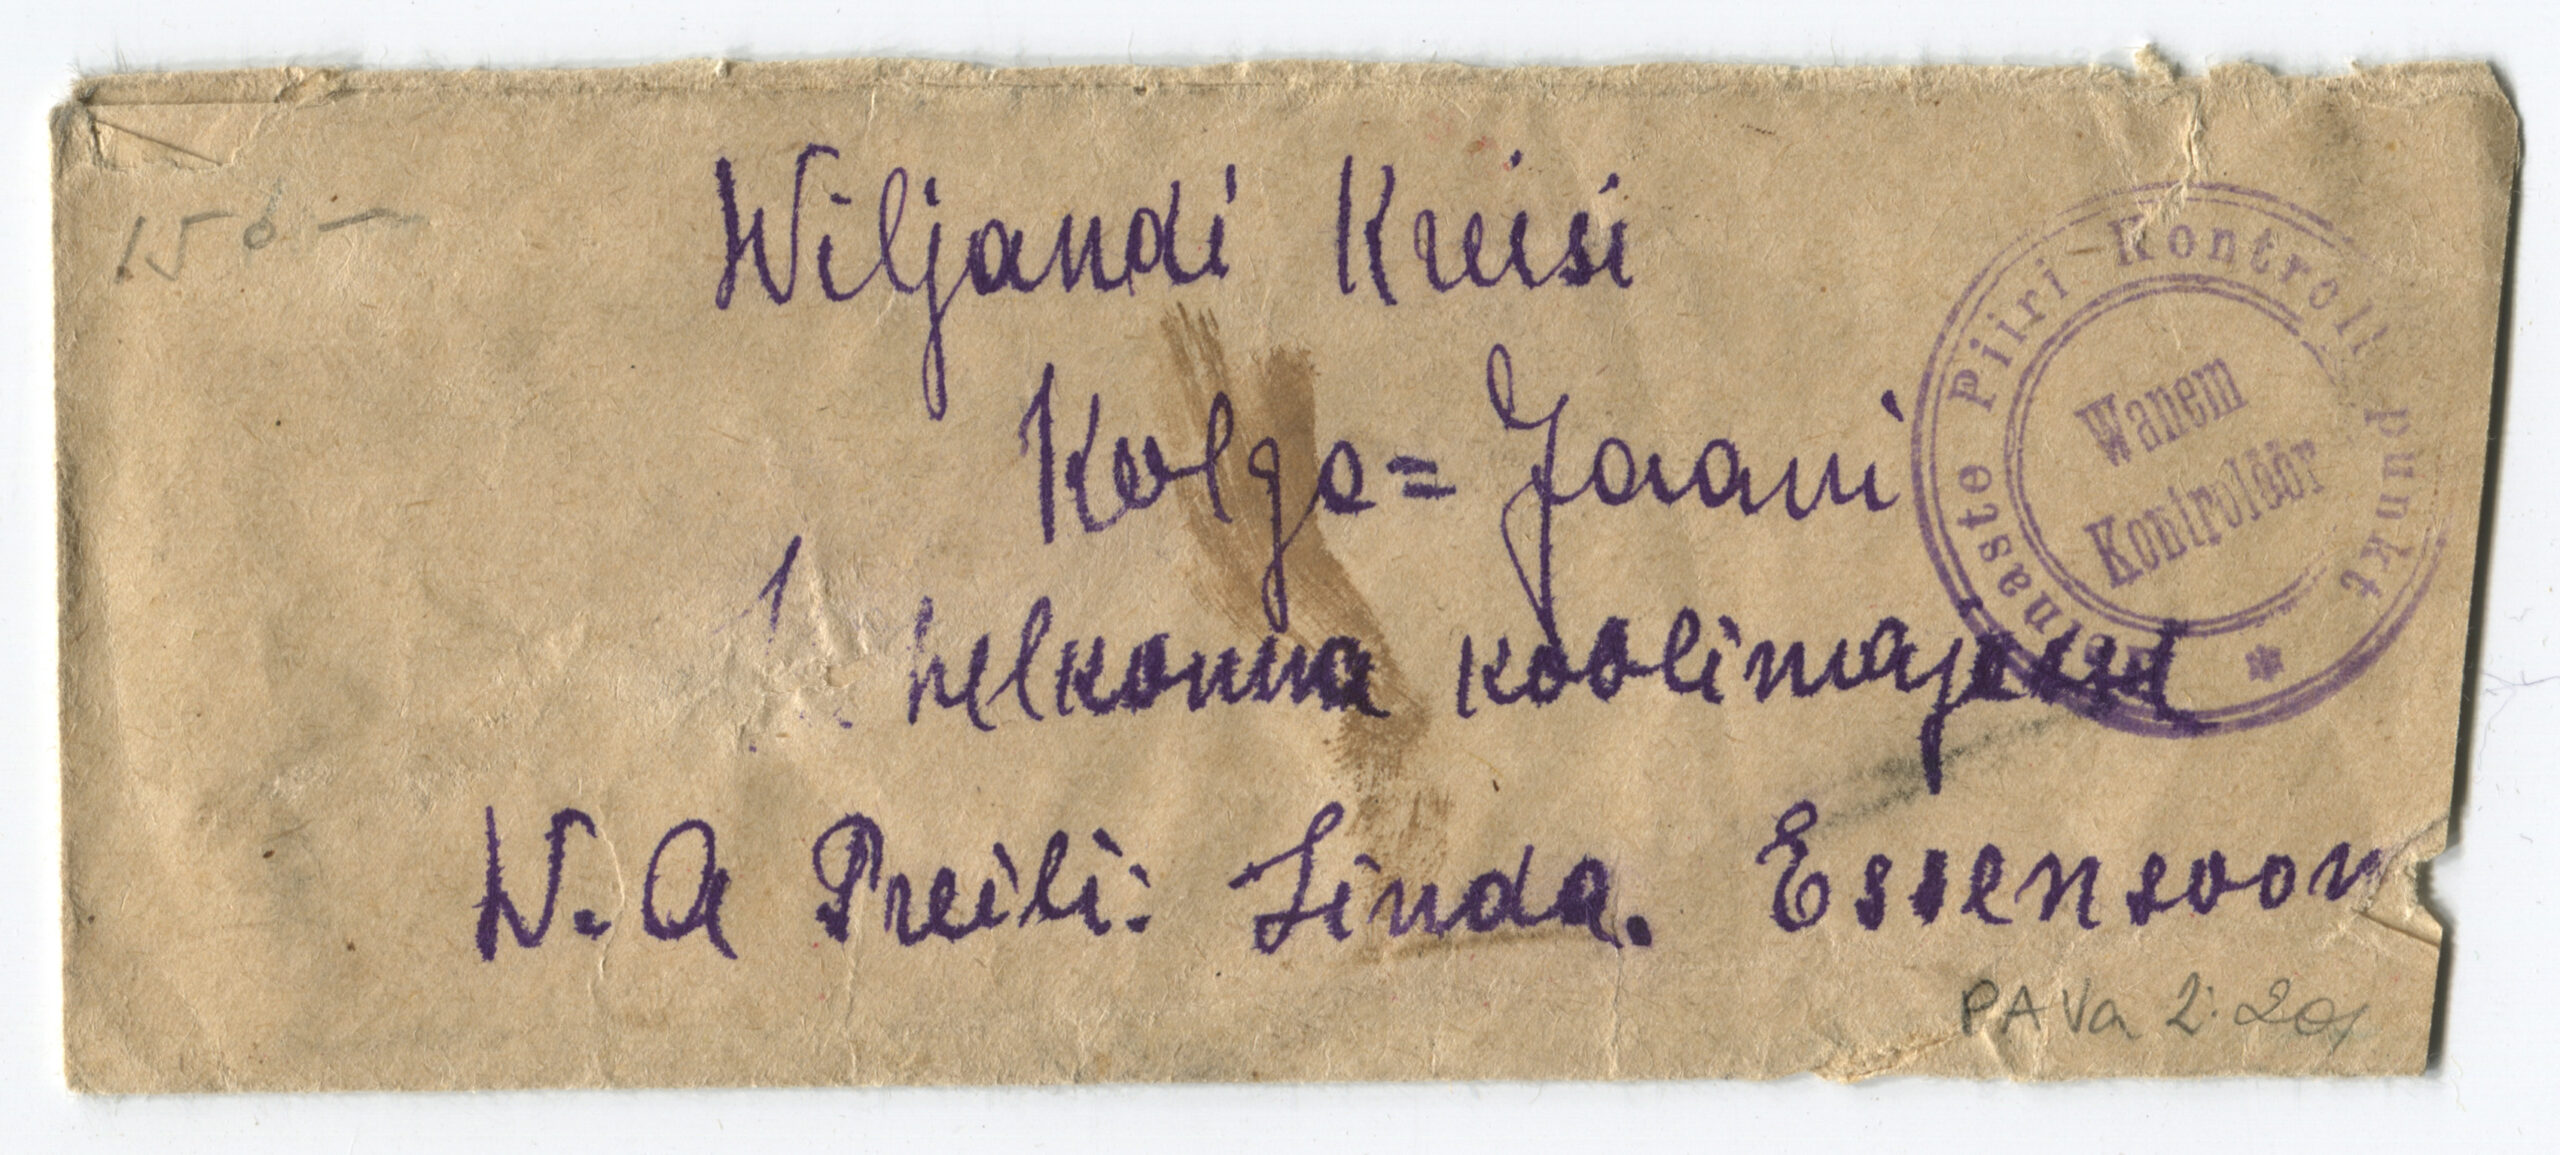 15 d —
Wiljandi Kreisi
Kolga= Jaani
helkonna koolimajasse
W. A Preili: Linda. Essensoon
Piiri-Kontroll punkt
Wanem
Kontrolöör
PA Va 2:201